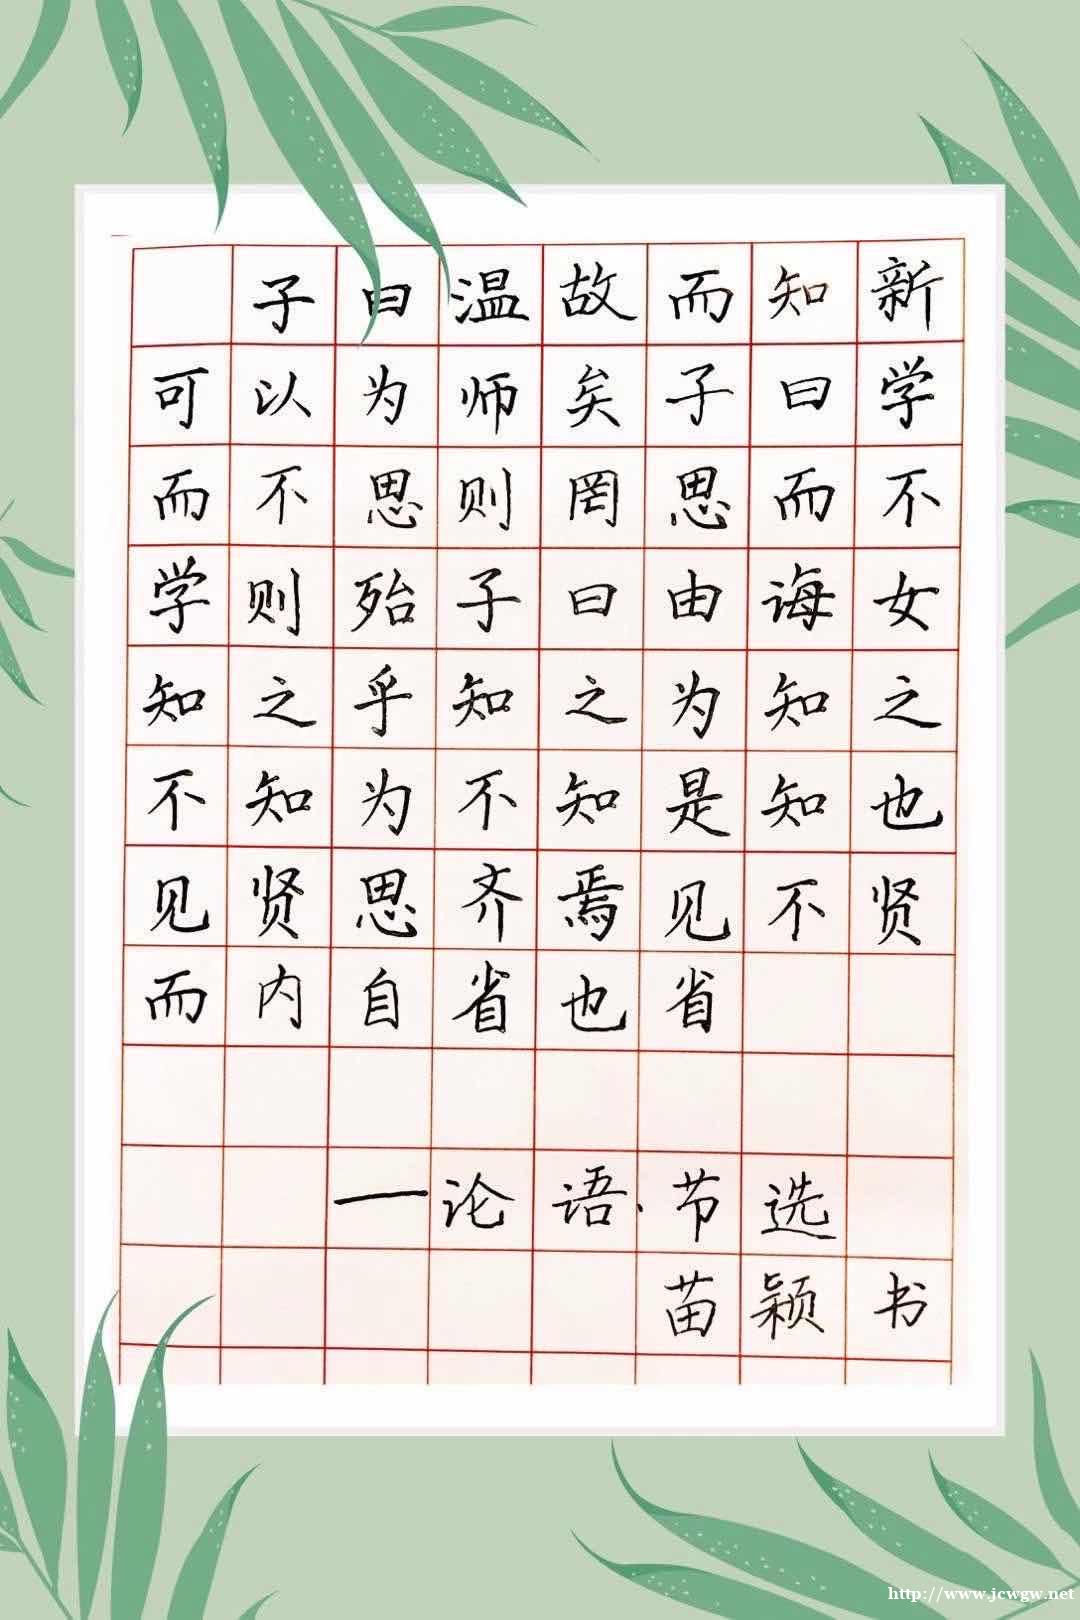 子曰温故而知新
可以为师矣子曰学
而不思则罔思而不
学则殆子曰由诲女
知之乎知之为知之
不知为不知是知也
见贤思齐焉见不贤
而内自省也省
一论语·节选
苗颖书
http://www.jcwgw.net